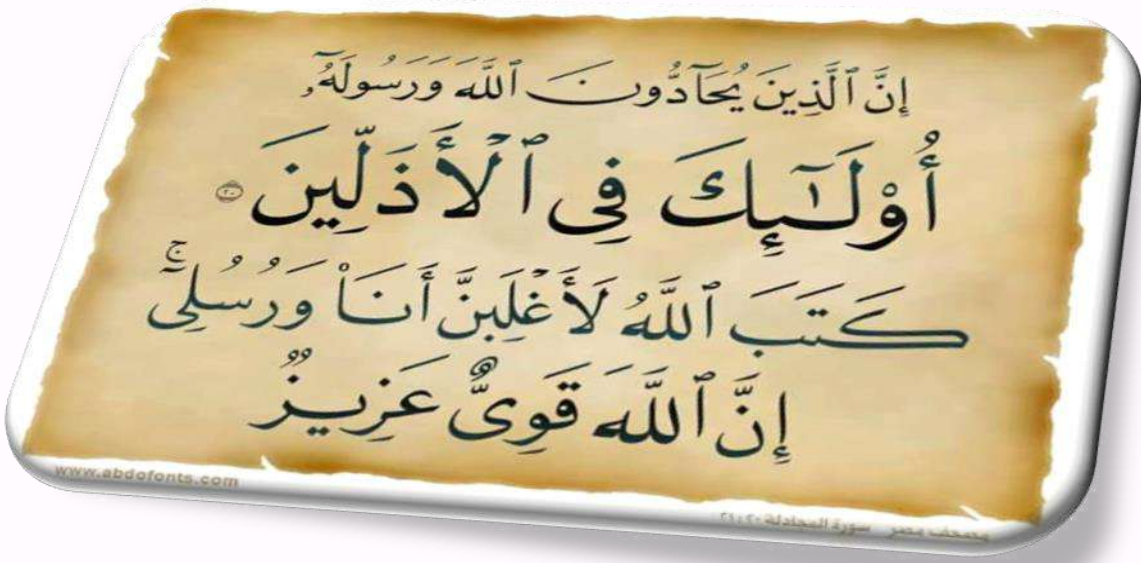 إِنَّ ٱلَّذِينَ يُحَآدُّونَ ٱللَّهَ وَرَسُولَهُۥٓ
أُو۟لَـٰٓئِكَ فِى ٱلْأَذَلِّينَ ٢٠
كَتَبَ ٱللَّهُ لَأَغْلِبَنَّ أَنَا۠ وَرُسُلِىٓ ۚ
إِنَّ ٱللَّهَ قَوِىٌّ عَزِيزٌ
www.abdofonts.com
مصحف مصر سورة المجادلة ٢٠ : ٢١